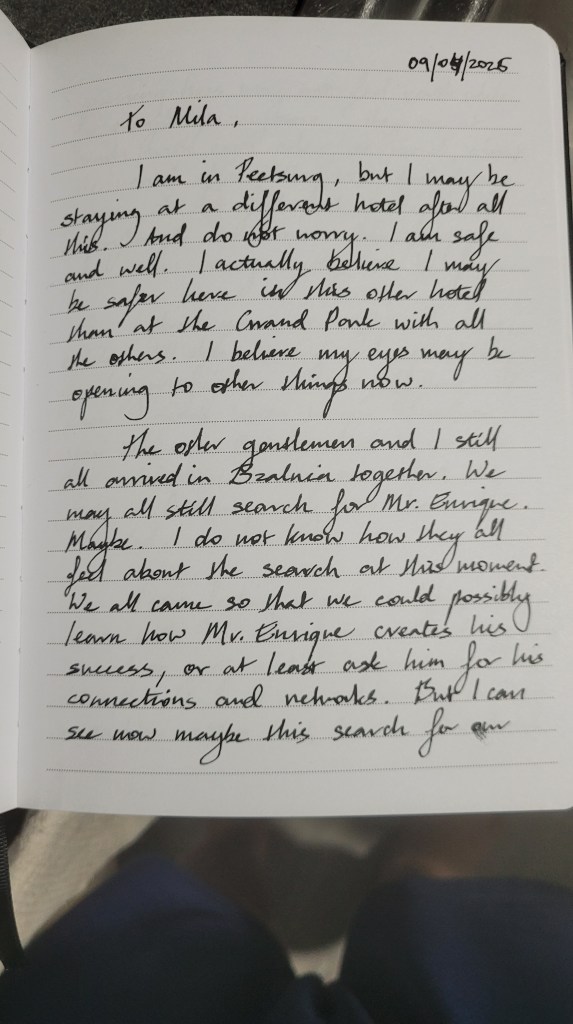 09/04/2025
To Mila,
I am in Peetsung, but I may be
staying at a different hotel after all
this. And do not worry. I am safe
and well. I actually believe I may
be safer here in this other hotel
than at the Grand Park with all
the others. I believe my eyes may be
opening to other things now.
The other gentlemen and I still
all arrived in Bzalnia together. We
may all still search for Mr. Enrique.
Maybe. I do not know how they all
feel about the search at this moment.
We all came so that we could possibly
learn how Mr. Enrique creates his
success, or at least ask him for his
connections and networks. But I can
see now maybe this search for our